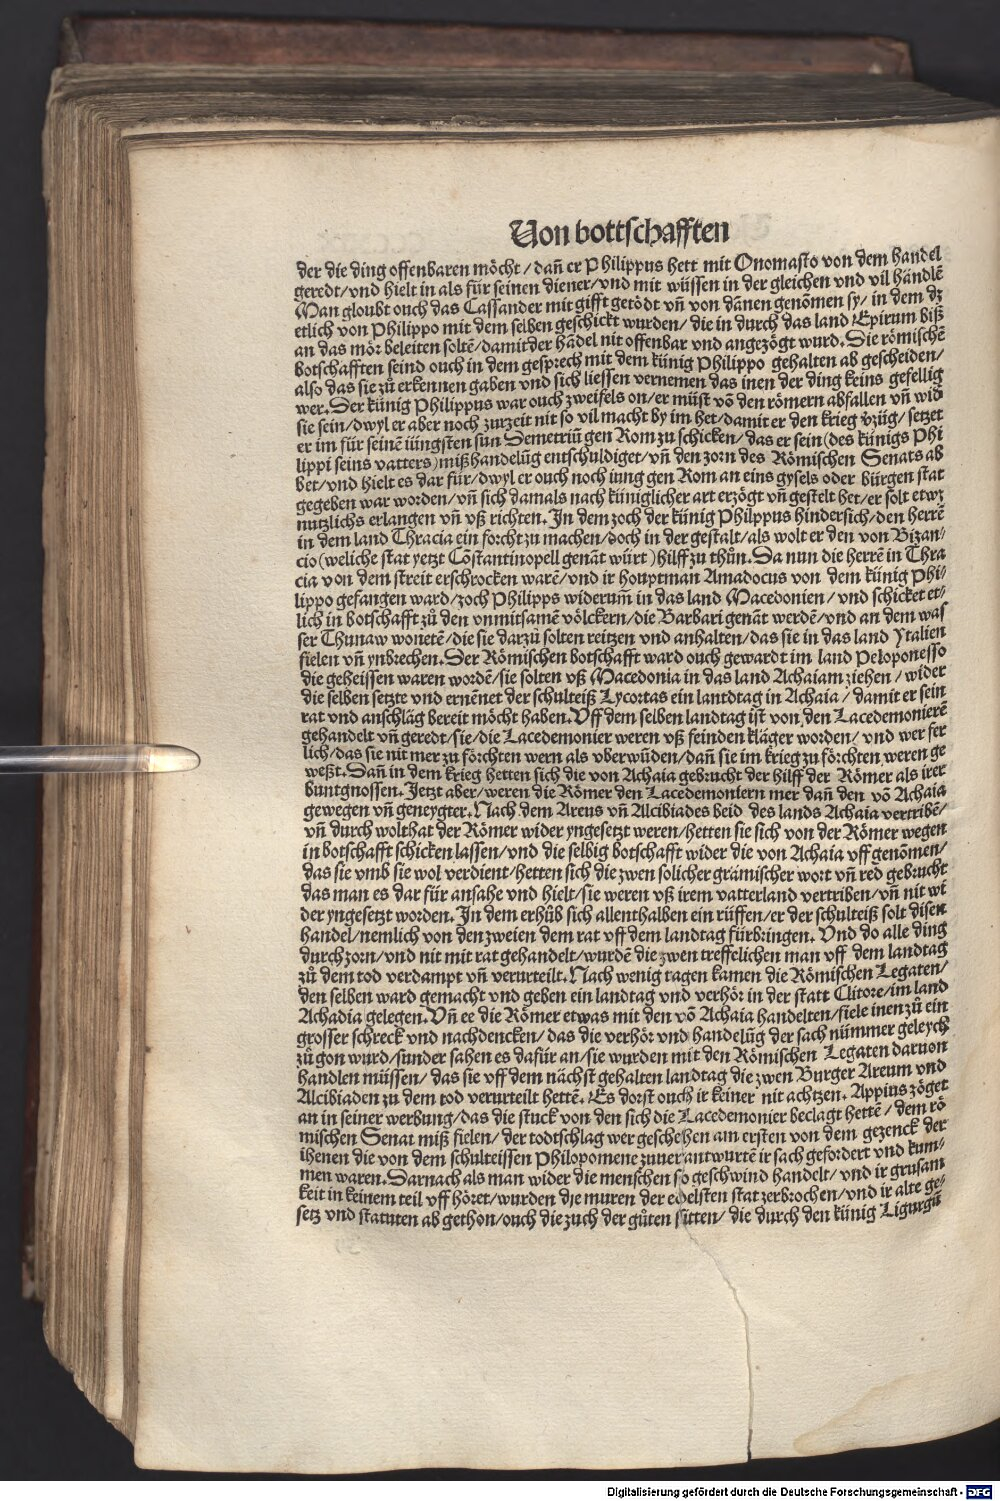 Von bottschafften
der die ding offenbaren möcht / dañ er Philippus hett mit Onomasto von dem handel
geredt/vnd hielt in als für seinen diener/vnd mit wüssen in der gleichen vnd vil händlē
Man gloubt ouch das Cassander mit gifft getödt vñ von dānen genōmen sy/ in dem dz
etlich von Philippo mit dem selben geschickt wurden/ die in durch das land Epirum biß
an das mör beleiten soltē/damit der hādel nit offenbar vnd angezögt wurd. Die römischē
botschafften seind ouch in dem gesprech mit dem künig Philippo gehalten ab gescheiden/
also das sie zů erkennen gaben vnd sich liessen vernemen das inen der ding keins gefellig
wer. Der künig Philippus war ouch zweifels on/er müst vō den römern abfallen vñ wid
sie sein/dwyl er aber noch zurzeit nit so vil macht by im het/damit er den krieg vzüg/ setzet
er im für seinē iüngsten sun Demetriū gen Rom zu schicken/das er sein(des künigs Phi
lippi seins vatters)mißhandelūg entschuldiget/vñ den zorn des Römischen Senats ab
bet/vnd hielt es dar für/dwyl er ouch noch iung gen Rom an eins gysels oder bürgen stat
gegeben war worden/vñ sich damals nach küniglicher art erzögt vñ gestelt het/er solt etwz
nutzlichs erlangen vñ vß richten. In dem zoch der künig Philppus hindersich/den herrē
in dem land Thracia ein forcht zu machen/doch in der gestalt/als wolt er den von Bizan-
cio(weliche stat yetzt Cōstantinopell genāt würt)hilff zu thůn. Da nun die herrē in Thra
cia von dem streit erschrocken warē/vnd ir houptman Amadocus von dem künig Phi-
lippo gefangen ward/zoch Philipps widerum̄ in das land Macedonien/ vnd schicket et-
lich in botschafft zů den vnmitsamē völckern/die Barbari genāt werdē/vnd an dem was
ser Thunaw wonetē/die sie darzů solten reitzen vnd anhalten/das sie in das land Ytalien
fielen vñ ynbrechen. Der Römischen botschafft ward ouch gewardt im land Peloponesso
die geheissen waren wordē/sie solten vß Macedonia in das land Achaiam ziehen/ wider
die selben setzte vnd ernēnet der schulteiß Lycortas ein lantdtag in Achaia/ damit er sein
rat vnd anschläg bereit möcht haben. Vff dem selben landtag ist von den Lacedemonierē
gehandelt vñ geredt/sie/die Lacedemonier weren vß feinden kläger worden/ vnd wer fer
lich/das sie nit mer zu förchten wern als vberwūden/dañ sie im krieg zu förchten weren ge
weßt. Dañ in dem krieg hetten sich die von Achaia gebrucht der hilff der Römer als irer
buntgnossen. Jetzt aber/weren die Römer den Lacedemoniern mer dañ den vō Achaia
gewegen vñ geneygter. Nach dem Areus vñ Alcibiades beid des lands Achaia vertribē/
vñ durch wolthat der Römer wider yngesetzt weren/hetten sie sich von der Römer wegen
in botschafft schicken lassen/vnd die selbig botschafft wider die von Achaia vff genōmen/
das sie vmb sie wol verdient/hetten sich die zwen solicher grāmischer wort vñ red gebrucht
das man es dar für ansahe vnd hielt/sie weren vß irem vatterland vertriben/vñ nit wi
der yngesetzt worden. In dem erhůb sich allenthalben ein rüffen/er der schulteiß solt disen
handel/nemlich von den zweien dem rat vff dem landtag fürbringen. Vnd do alle ding
durch zorn/vnd nit mit rat gehandelt/wurdē die zwen treffelichen man vff dem landtag
zů dem tod verdampt vñ verurteilt. Nach wenig tagen kamen die Römischen Legaten/
den selben ward gemacht vnd geben ein landtag vnd verhör in der statt Clitore/im land
Achadia gelegen. Vñ ee die Römer etwas mit den vō Achaia handelten/fiele inen zů ein
grosser schreck vnd nachdencken/das die verhör vnd handelūg der sach nümmer geleych
zů gon wurd/sunder sahen es dafür an/sie wurden mit den Römischen Legaten daruon
handlen müssen/das sie vff dem nächst gehalten landtag die zwen Burger Areum vnd
Alcibiaden zu dem tod verurteilt hettē. Es dorst ouch ir keiner nit achtzen. Appius zöget
an in seiner werbung/das die stuck von den sich die Lacedemonier beclagt hettē/ dem rö
mischen Senat miß fielen/der todtschlag wer geschehen am ersten von dem gezenck der
ihenen die von dem schulteissen Philopomene zuuerantwurtē ir sach gefordert vnd kum-
men waren. Darnach als man wider die menschen so geschwind handelt/ vnd ir grusam
keit in keinem teil vff höret/wurden die muren der edelsten stat zerbrochen/vnd ir alte ge-
setz vnd statuten ab gethon/ouch die zuch der gůten sitten/ die durch den künig Ligurgū
Digitalisierung gefördert durch die Deutsche Forschungsgemeinschaft - DFG